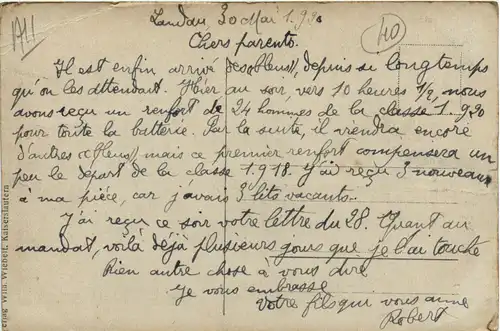 1911
40
Landau, 30 Mai 1.920
Chers parents.
Il est enfin arrivé des "bleus", depuis si longtemps
qu'on les attendait. Hier au soir, vers 10 heures 1/2, nous
avons reçu un renfort de 24 hommes de la classe 1.920
pour toute la batterie. Par la suite, il viendra encore
d'autres "bleus", mais ce premier renfort compensera un
peu le départ de la classe 1.918. J'ai reçu 3 nouveaux
à ma pièce, car j'avais 3 lits vacants.
J'ai reçu ce soir votre lettre du 28. Quant au
mandat, voilà déjà plusieurs jours que je l'ai touché
Rien autre chose à vous dire
Je vous embrasse
Votre fils qui vous aime
Robert
Verlag Wilh. Wichert Kaiserslautern